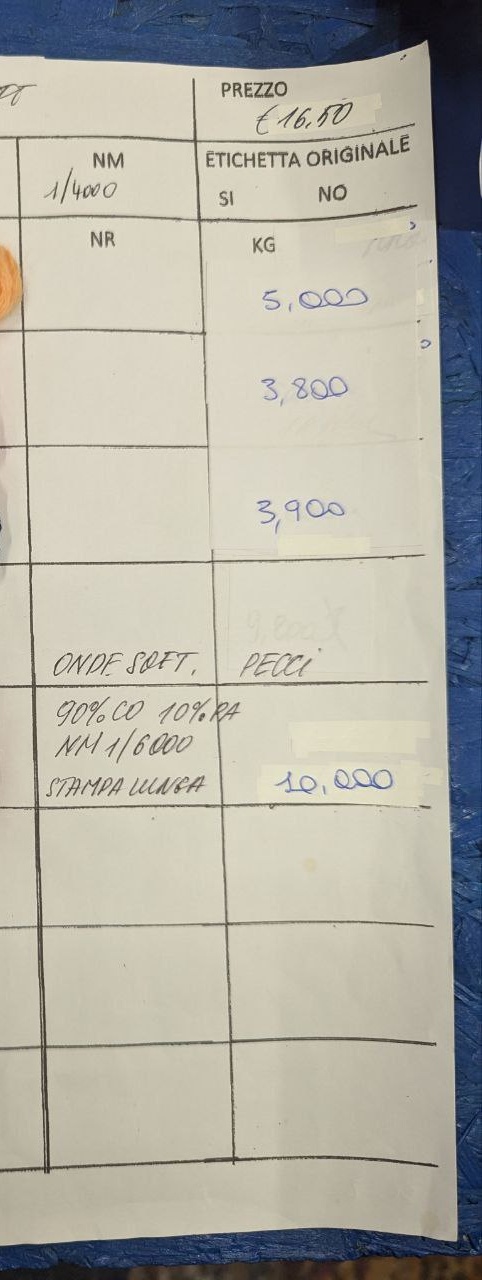 PREZZO
€ 16,50
NM
1/4000
ETICHETTA ORIGINALE
SI NO
NR
KG
5,000
3,800
3,900
ONDE SOFT. PECCI
90% CO 10% PA
NM 1/6000
STAMPA LUNGA
10,000